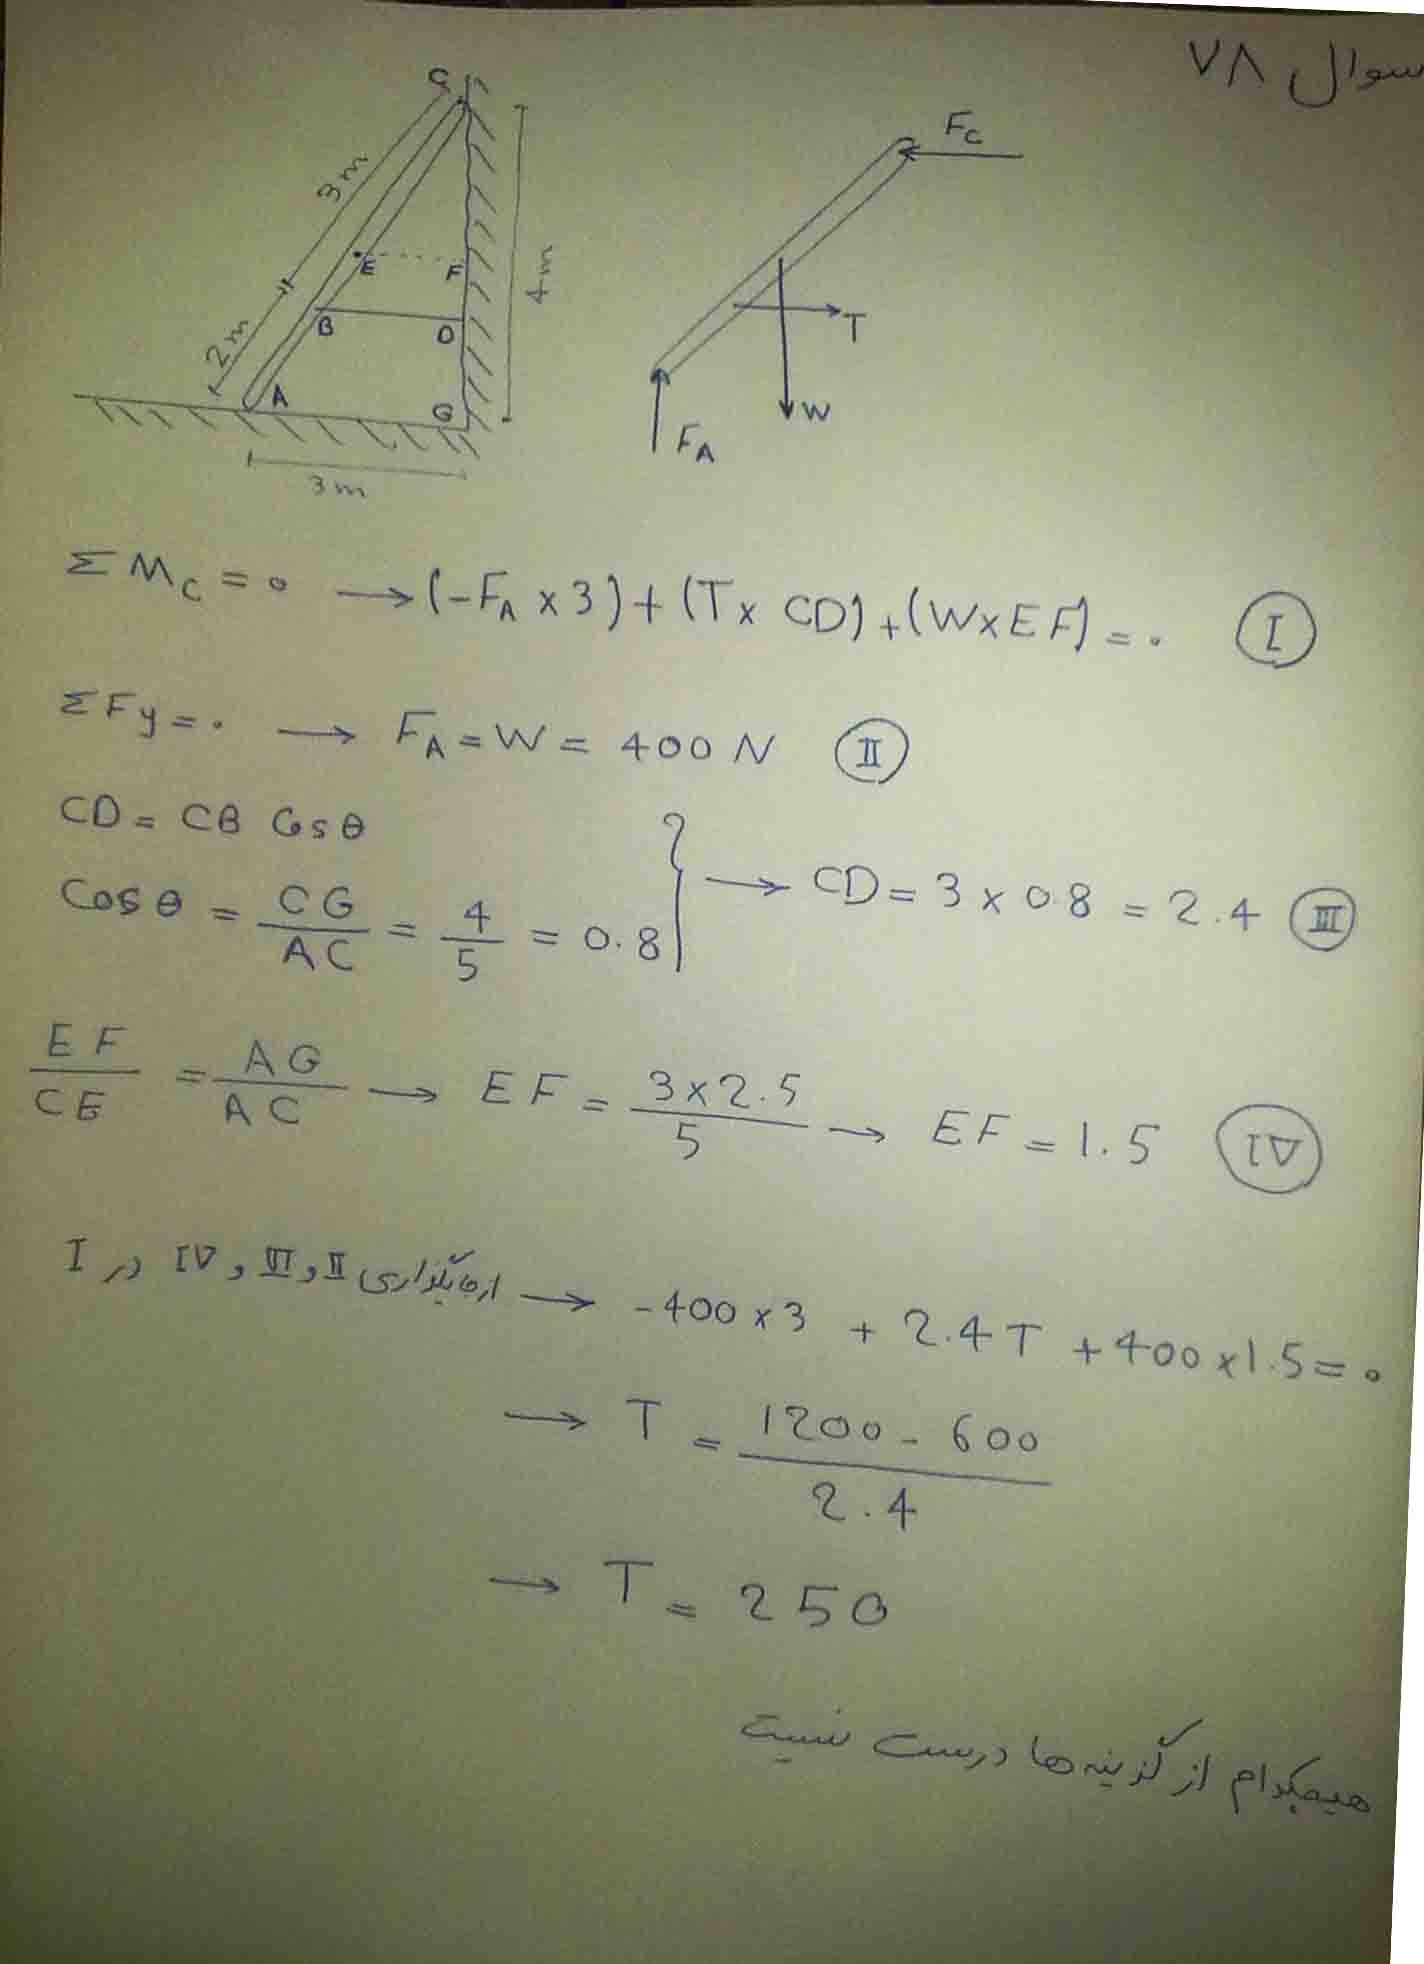 سوال ۷۸
C
3m
E
F
4m
2m
B
D
A
G
3m
Fc
T
W
FA
ΣMc = 0 → (-FA × 3) + (T × CD) + (W × EF) = 0 I
ΣFy = 0 → FA = W = 400 N II
CD = CB Cos θ
Cos θ = CG / AC = 4 / 5 = 0.8 } → CD = 3 × 0.8 = 2.4 III
EF / CE = AG / AC → EF = 3 × 2.5 / 5 → EF = 1.5 IV
از جایگذاری II و III و IV در I → -400 × 3 + 2.4 T + 400 × 1.5 = 0
→ T = 1200 - 600 / 2.4
→ T = 250
هیچکدام از گزینه ها درست نیست